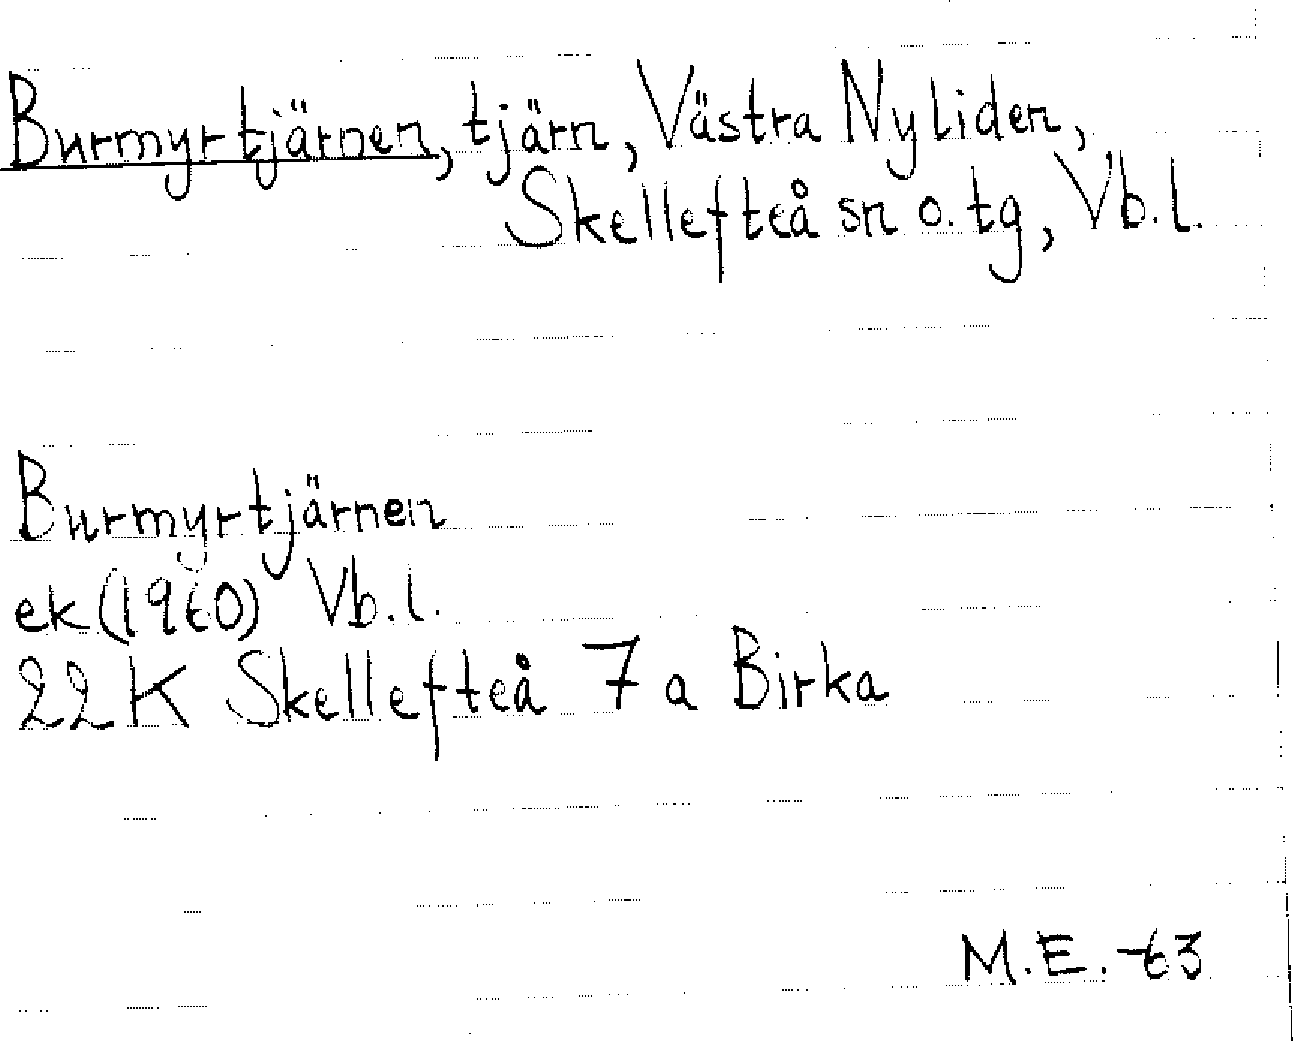 Burmyrtjärnen, tjärn, Västra Nyliden,
Skellefteå sn o. tg, Vb.l.
Burmyrtjärnen
ek (1960) Vb.l.
22K Skellefteå 7 a Birka
M.E. -63